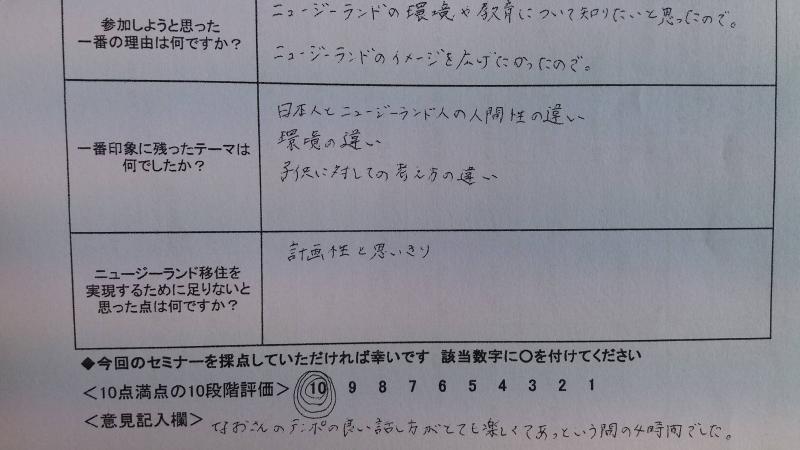 参加しようと思った
一番の理由は何ですか？
ニュージーランドの環境や教育について知りたいと思ったので。
ニュージーランドのイメージを広げたかったので。
一番印象に残ったテーマは
何でしたか？
日本人とニュージーランド人の人間性の違い
環境の違い
子供に対しての考え方の違い
ニュージーランド移住を
実現するために足りないと
思った点は何ですか？
計画性と思いきり
◆今回のセミナーを採点していただければ幸いです 該当数字に〇を付けてください
＜10点満点の10段階評価＞ 10 9 8 7 6 5 4 3 2 1
＜意見記入欄＞ なおさんのテンポの良い話し方がとても楽しくてあっという間の4時間でした。